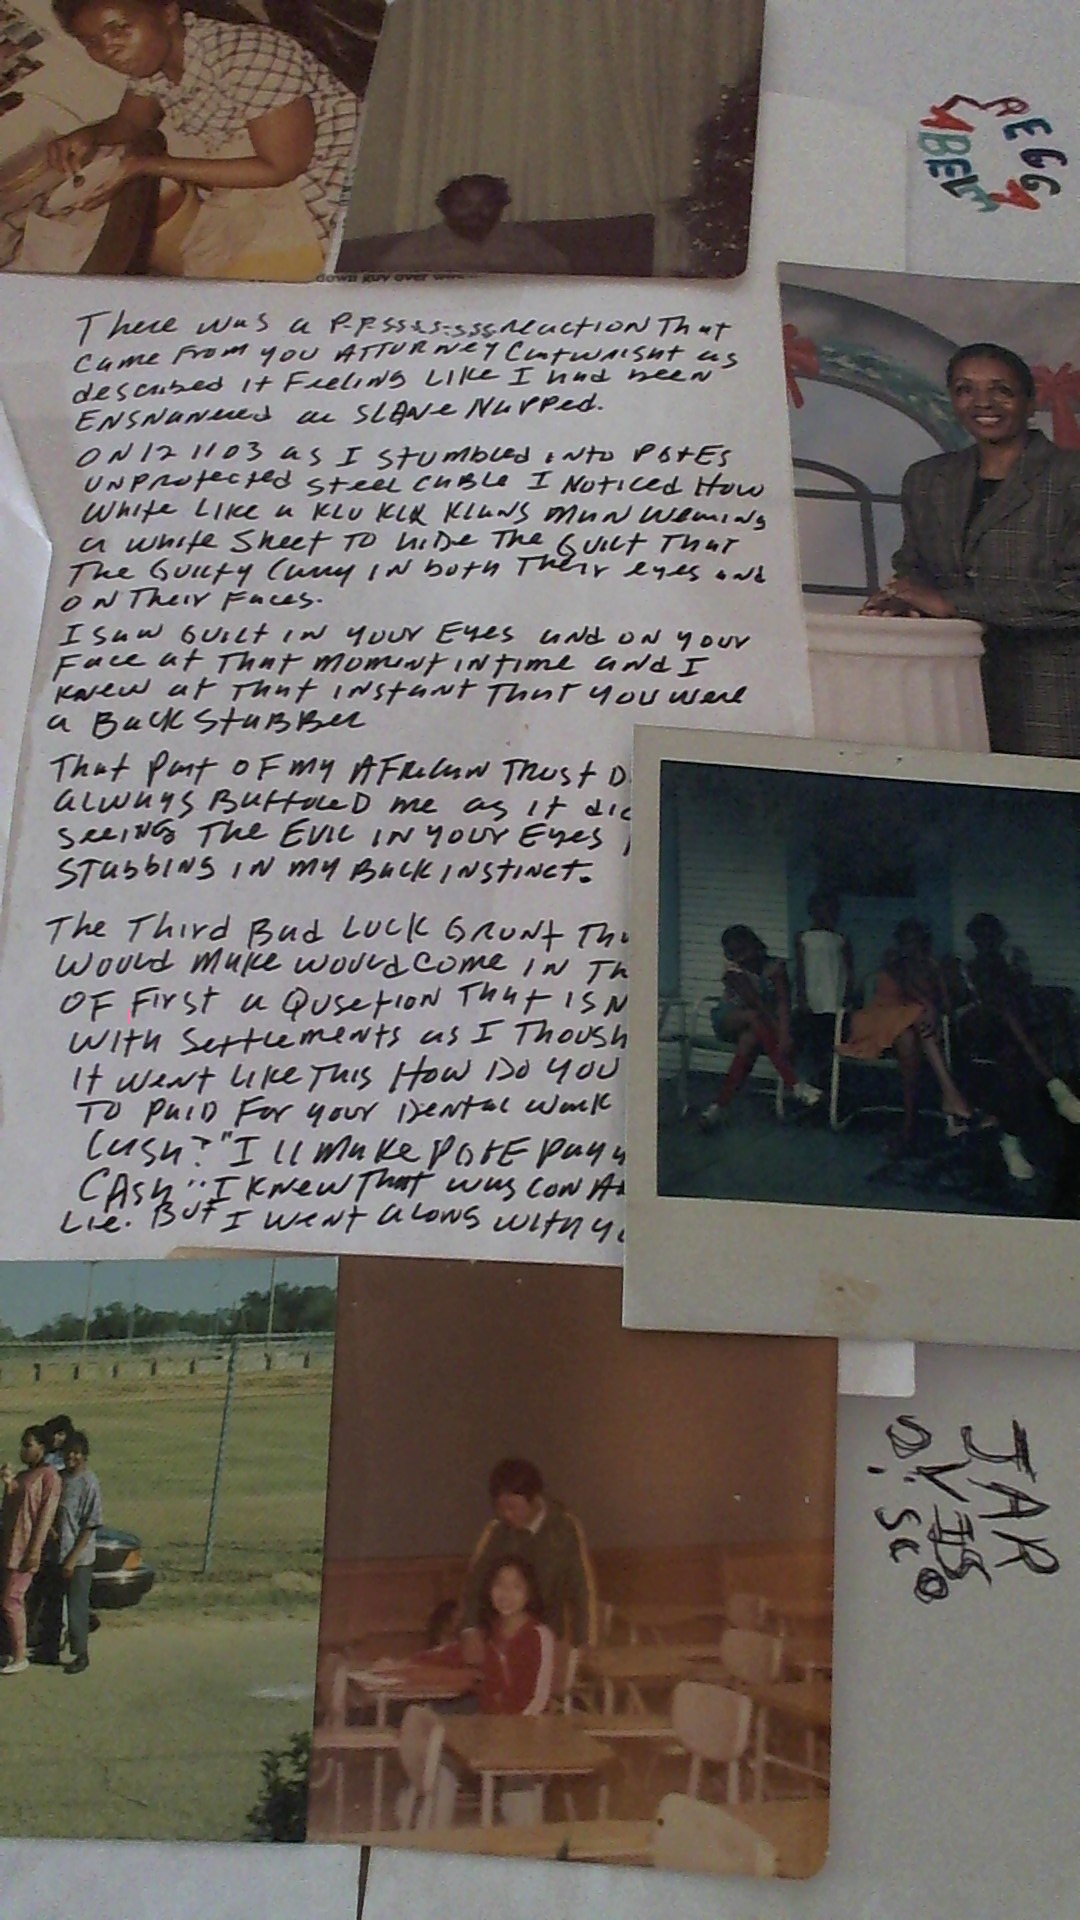 down guy over
PEGGA
LABEL
There was a P-P-ssss-sss reaction That
came From you ATTORNEY Cartwright as
described it Feeling Like I had been
ENSNANEED as SLAVE NAPPed.
ON 12 11 03 as I stumbled into PG&Es
UNProtected Steel cable I Noticed How
White Like a KLU KLX KLANS MAN Wearing
a white Sheet To hide The Guilt That
The Guilty Carry IN both Their eyes and
ON Their Faces.
I saw Guilt in your Eyes and on your
Face at That moment in time and I
knew at That instant That you were
a Back StaBBer
That Part OF my AFRican Trust D
always Buffered me as it dic
seeing The Evil in your Eyes
Stabbing in my Back instinct.
The Third Bad Luck Grunt Tha
would make would come in Th
OF First a Qusetion That is N
with Settlements as I Though
it went like This How Do you
To Paid For your Dental Work
Cash? "I ll make PG&E pay
CAsh" I knew That was con
Lie. But I went along with yo
JAR
VIS
D. Sco